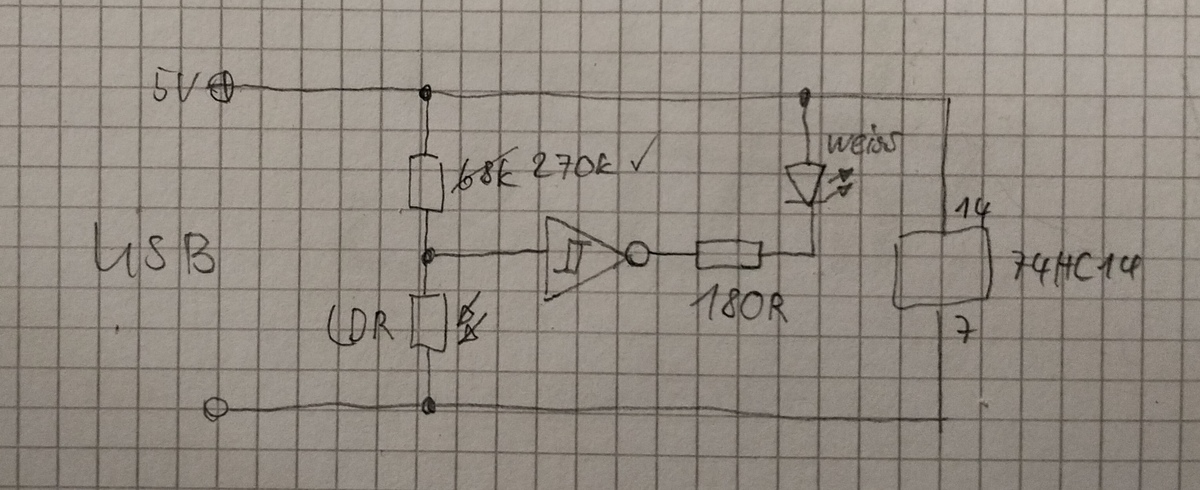 5V
weiss
68k 270k ✓
14
USB
74HC14
LDR
180R
7